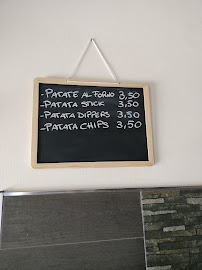 -PATATE AL FORNO 3,50
-PATATA STICK 3,50
-PATATA DIPPERS 3,50
-PATATA CHIPS 3,50